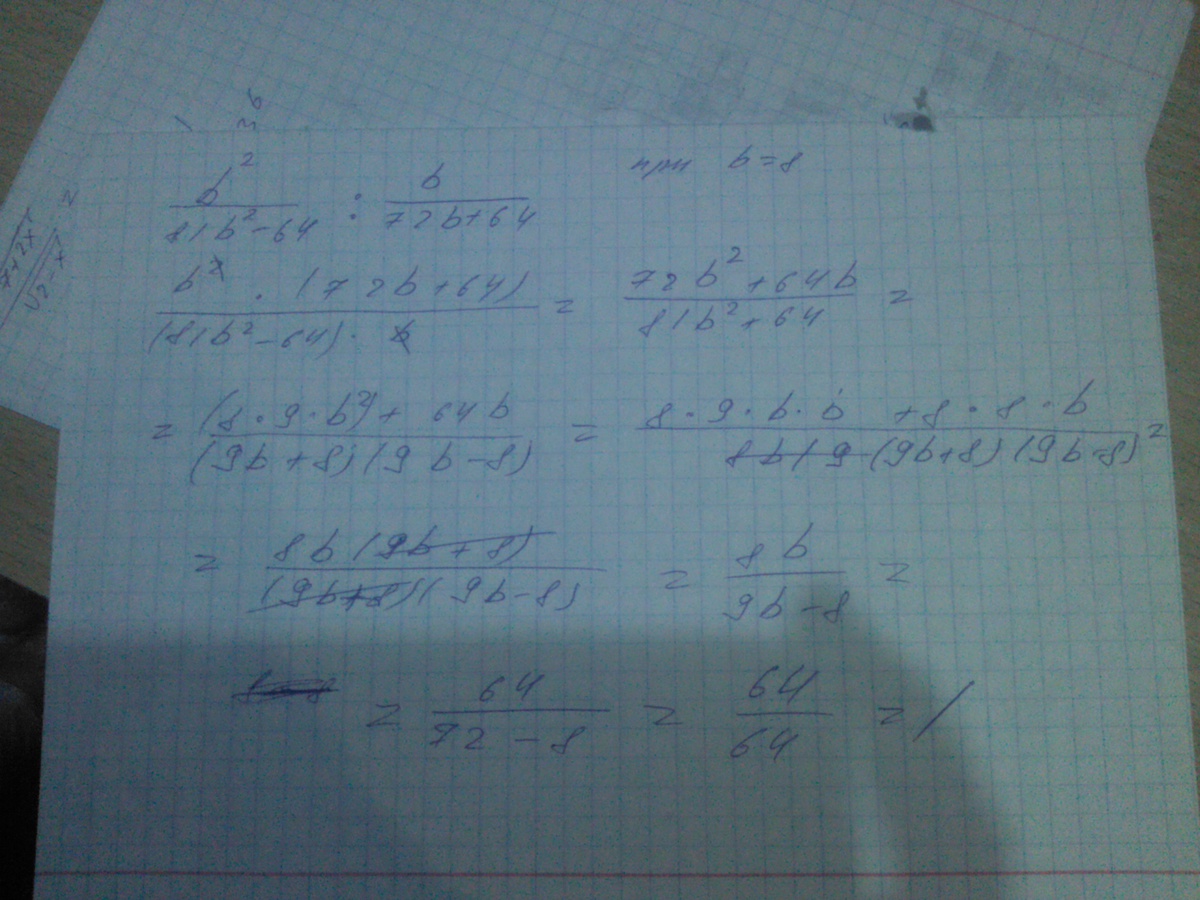 b²/(81b²-64) : b/(72b+64) при b=8
b² · (72b+64)/((81b²-64) · b) = (72b²+64b)/(81b²+64) =
= ((8·9·b²)+64b)/((9b+8)(9b-8)) = (8·9·b·b+8·8·b)/((9b+8)(9b-8)) =
= 8b(9b+8)/((9b+8)(9b-8)) = 8b/(9b-8) =
= 64/(72-8) = 64/64 = 1